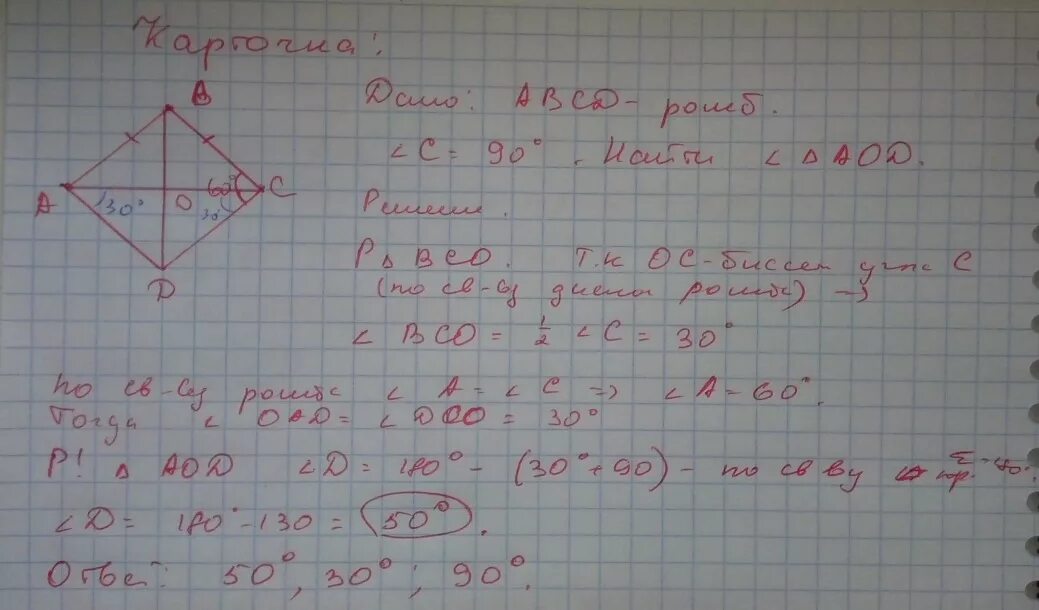 Карточка:
B
A
30°
O
60°
30°
C
D
Дано: ABCD - ромб.
∠C = 90°. Найти ∠ △ AOD.
Решение.
P △ BCO. Т.к OC - биссек угла C
(по св-ву диагн ромба) →
∠ BCO = 1/2 ∠C = 30°
по св-ву ромба ∠ A = ∠ C => ∠A = 60°.
Тогда ∠ OAD = ∠DCO = 30°
P! △ AOD ∠D = 180° - (30° + 90) - по св ву
∠D = 180° - 130 = 50°.
Ответ: 50°, 30°; 90°.